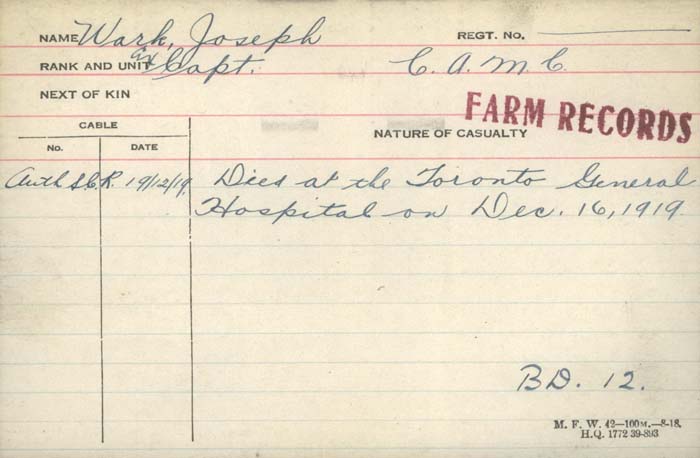 NAME Wark, Joseph REGT. NO.
RANK AND UNIT Ex Capt. C. A. M. C.
NEXT OF KIN
FARM RECORDS
CABLE NATURE OF CASUALTY
No. DATE
Auth S.C.R. 19/12/19. Dies at the Toronto General
Hospital on Dec. 16, 1919
B.D. 12.
M. F. W. 42—100M.—8-18.
H.Q. 1772 39-893